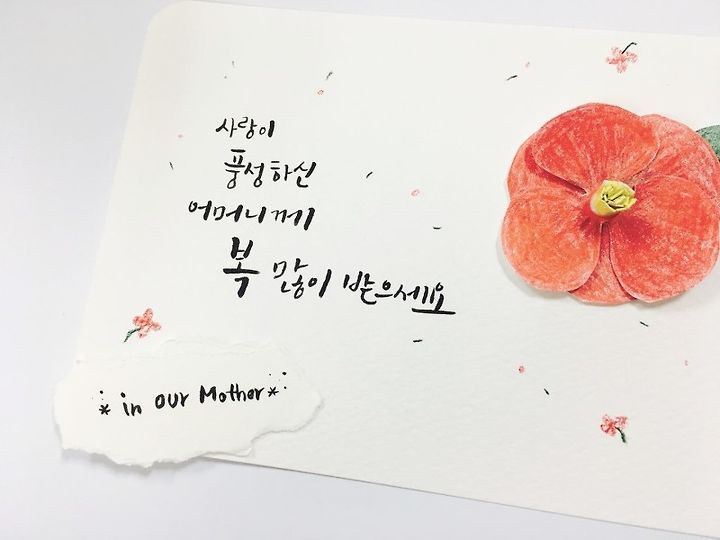 사랑이
풍성하신
어머니께
복 많이 받으세요
* in our Mother *